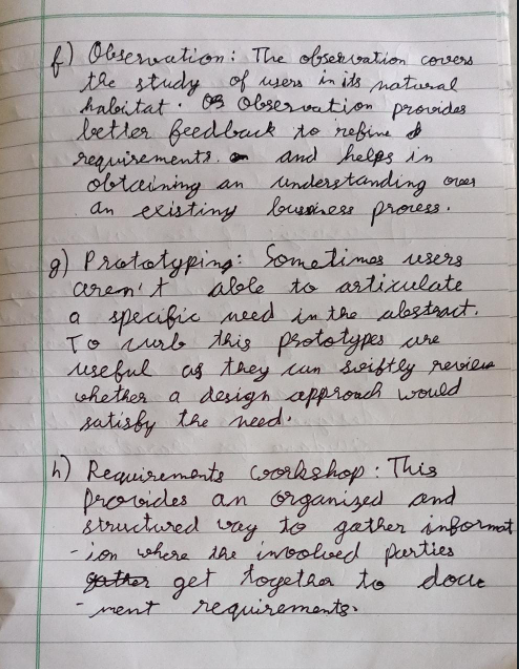 f) Observation: The observation covers
the study of users in its natural
habitat. Observation provides
better feedback to refine
requirements. and helps in
obtaining an understanding over
an existing business process.
g) Prototyping: Sometimes users
aren't able to articulate
a specific need in the abstract.
To curb this prototypes are
useful as they can swiftly review
whether a design approach would
satisfy the need.
h) Requirements workshop: This
provides an organized and
structured way to gather informat
-ion where the involved parties
gather get together to docu
-ment requirements.